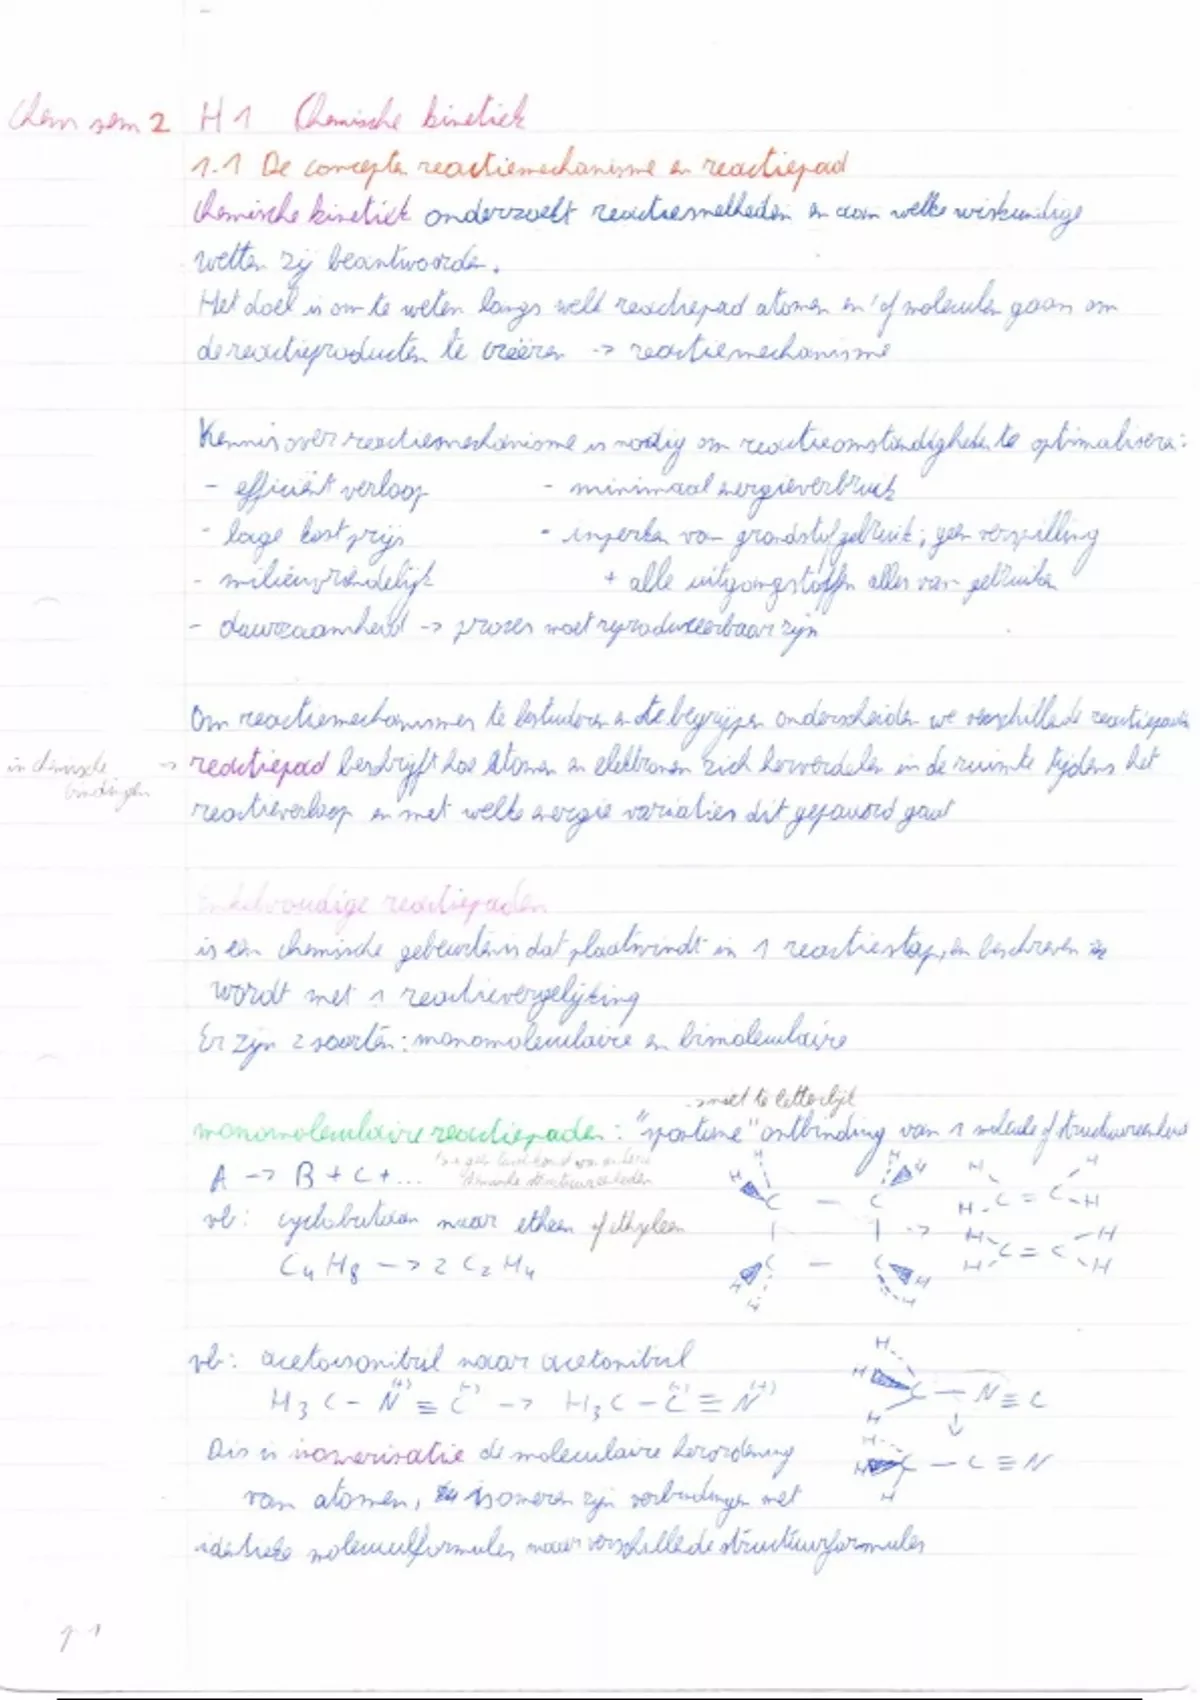 Chem sem 2 H1 Chemische kinetiek
1.1 De concepten reactiemechanisme en reactiepad
Chemische kinetiek onderzoekt reactiesnelheden en aan welke wiskundige
wetten zij beantwoorden.
Het doel is om te weten langs welk reactiepad atomen en/of moleculen gaan om
de reactieproducten te creëren -> reactiemechanisme
Kennis over reactiemechanisme is nodig om reactieomstandigheden te optimaliseren:
- efficiënt verloop - minimaal energieverbruik
- lage kostprijs - inperken van grondstofgebruik; geen verspilling
- milieuvriendelijk + alle uitgangstoffen alles van gebruiken
- duurzaamheid -> proces moet reproduceerbaar zijn
Om reactiemechanismen te bestuderen en te begrijpen onderscheiden we verschillende reactiepaden
in chemische bindingen -> reactiepad beschrijft hoe atomen en elektronen zich herverdelen in de ruimte tijdens het
reactieverloop en met welke energie variaties dit gepaard gaat
enkelvoudige reactiepaden
is een chemische gebeurtenis dat plaatsvindt in 1 reactiestap, en beschreven
wordt met 1 reactievergelijking
Er zijn 2 soorten: monomoleculaire en bimoleculaire
-> niet te letterlijk
monomoleculaire reactiepaden: "spontane" ontbinding van 1 molecule of structuureenheid
A -> B + C + ...
vb: cyclobutaan naar etheen of ethyleen
C4H8 -> 2 C2H4
H H H H H H
C - C H-C=C-H
| | -> H H
C - C C=C
H H H H H H
vb: acetoisonitril naar acetonitril
H3C - N(+) ≡ C(-) -> H3C - C(-) ≡ N(+)
H H H C - N≡C
↓
H H H C - C≡N
Dis is isomerisatie de moleculaire herordening
van atomen, isomeren zijn verbindingen met
identieke molecuulformules maar verschillende structuurformules
p.1